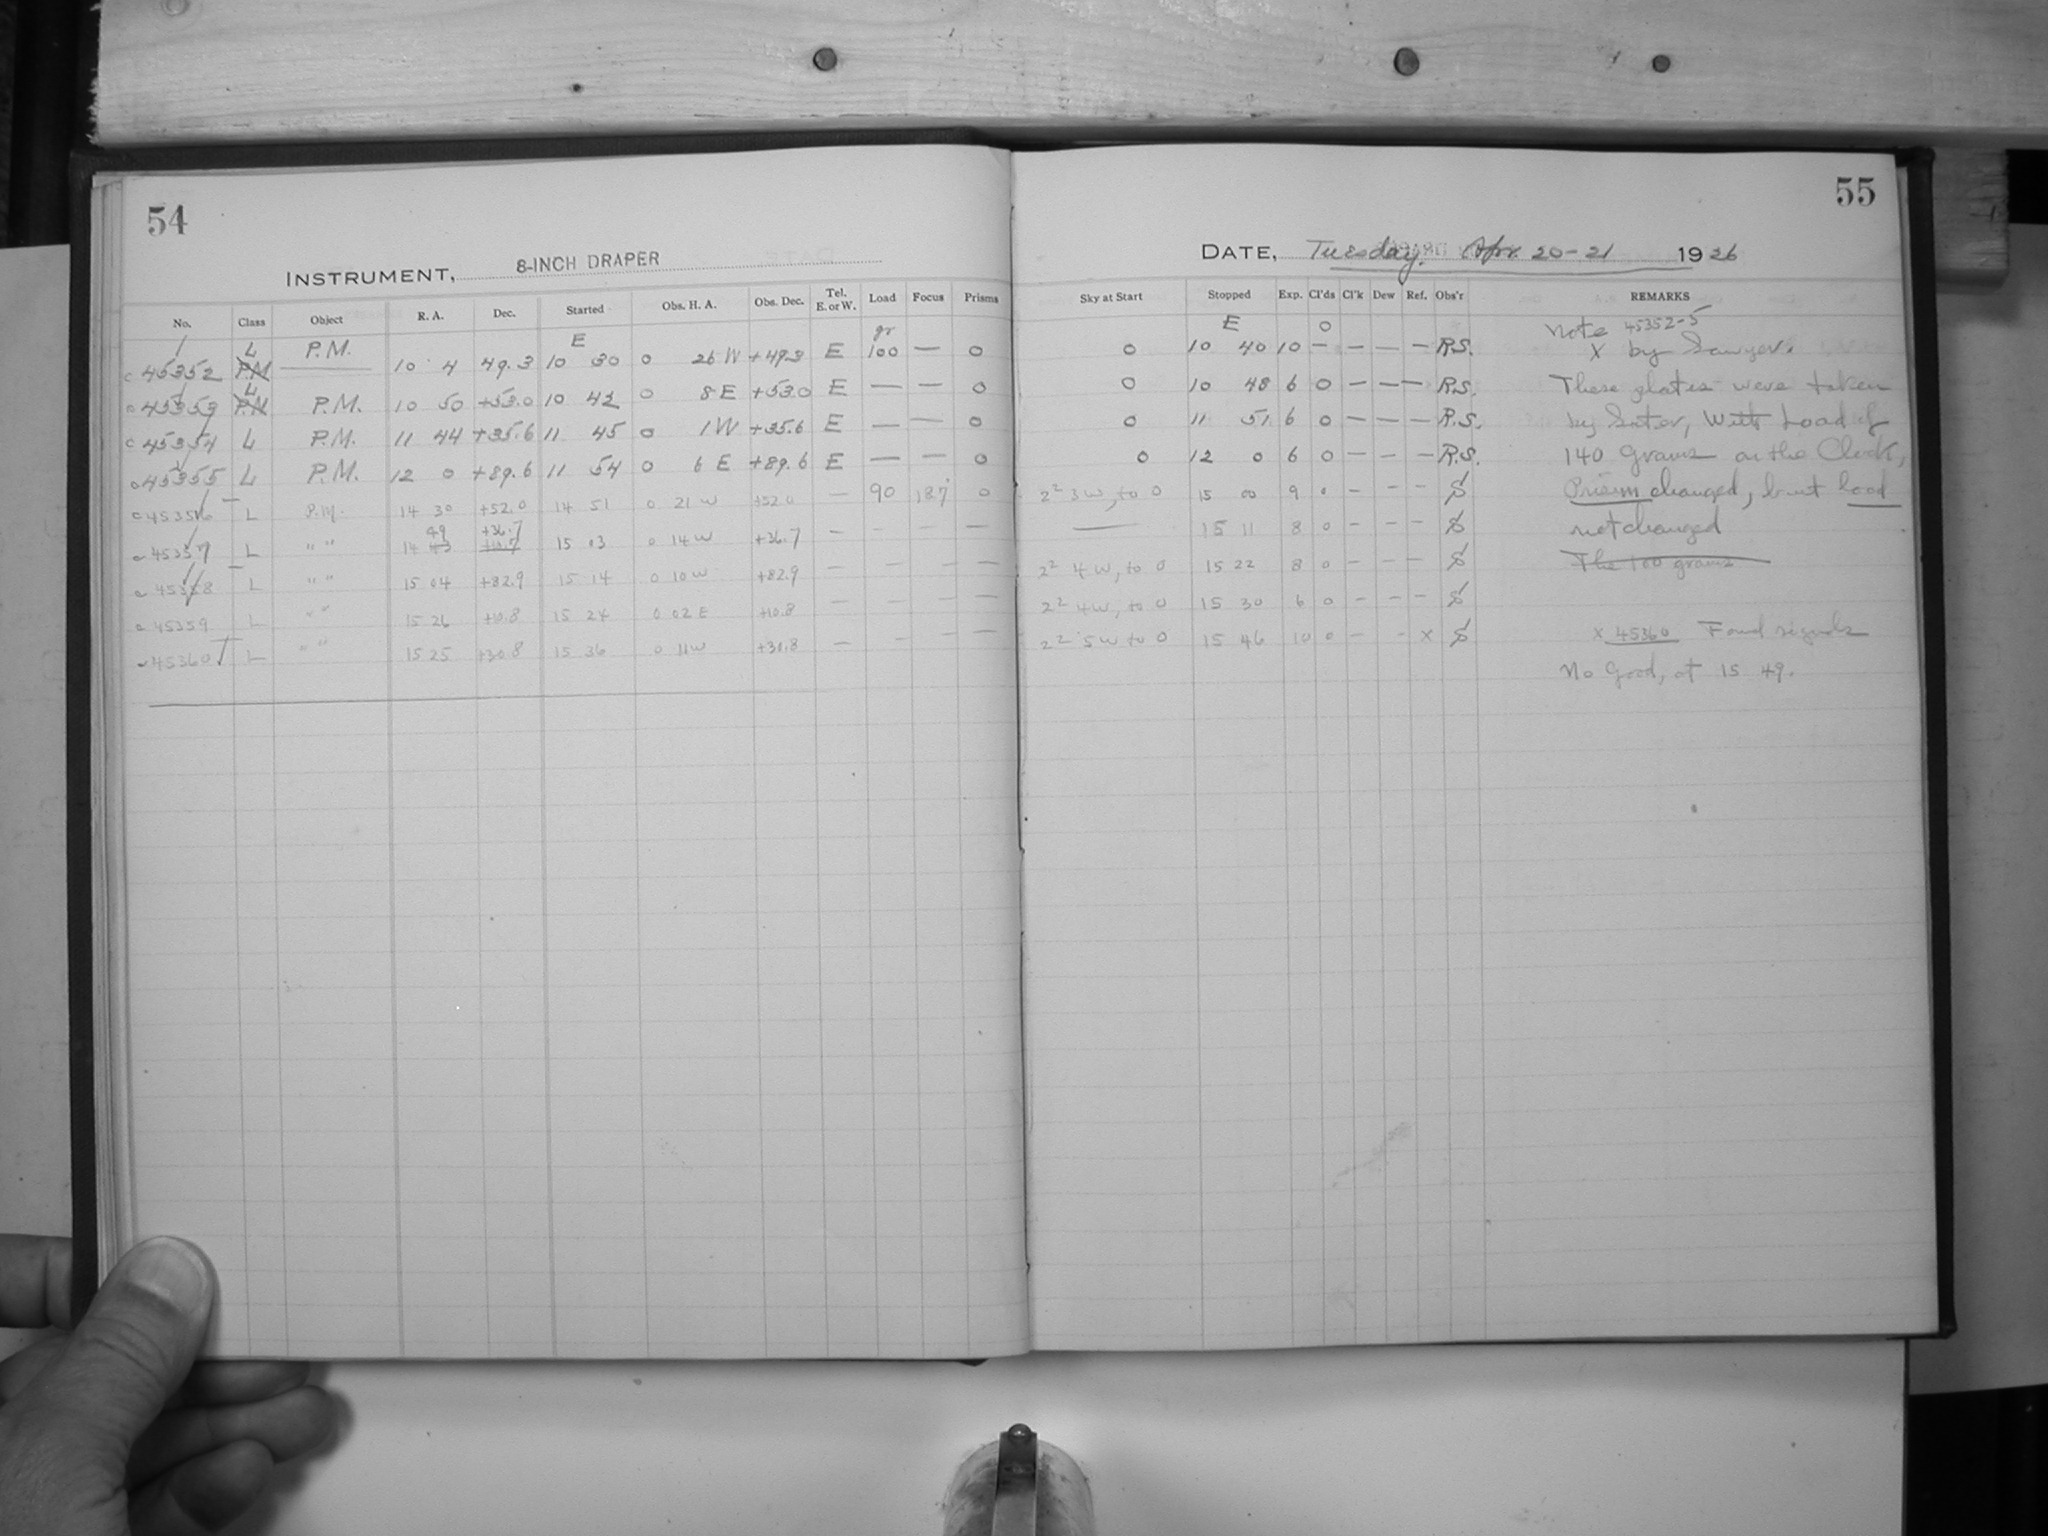 54
INSTRUMENT, 8-INCH DRAPER
No. Class Object R. A. Dec. Started Obs. H. A. Obs. Dec. Tel. E. or W. Load Focus Prisms
E gr
c 45352 L PM P.M. 10 4 49.3 10 30 0 26 W +49.3 E 100 — 0
c 45353 L PM P.M. 10 50 +53.0 10 42 0 8 E +53.0 E — — 0
c 45354 L P.M. 11 44 +35.6 11 45 0 1 W +35.6 E — — 0
c 45355 L P.M. 12 0 +89.6 11 54 0 6 E +89.6 E — — 0
c 45356 L P.M. 14 30 +52.0 14 51 0 21 W +52.0 — 90 187 0
49 +36.7
c 45357 L " " 14 43 +10.7 15 03 0 14 W +36.7 — — — —
c 45358 L " " 15 04 +82.9 15 14 0 10 W +82.9 — — — —
c 45359 L " " 15 26 +10.8 15 24 0 02 E +10.8 — — — —
c 45360 L " " 15 25 +30.8 15 36 0 11 W +30.8 — — — —
55
DATE, Tuesday. Apr. 20-21 1926
Sky at Start Stopped Exp. Cl'ds Cl'k Dew Ref. Obs'r REMARKS
E 0 Note 45352-5
0 10 40 10 — — — — R.S. X by Sawyer.
0 10 48 6 0 — — — R.S. These plates were taken
0 11 51 6 0 — — — R.S. by Sater, With Load of
0 12 0 6 0 — — — R.S. 140 Grams on the Clock,
2² 3 W, to 0 15 00 9 0 — — — S Prism changed, but Load
— 15 11 8 0 — — — S not changed
2² 4 W, to 0 15 22 8 0 — — — S The 100 grams
2² 4 W, to 0 15 30 6 0 — — — S
2² 5 W to 0 15 46 10 0 — — X S X 45360 Found signals
No Good, at 15 49.